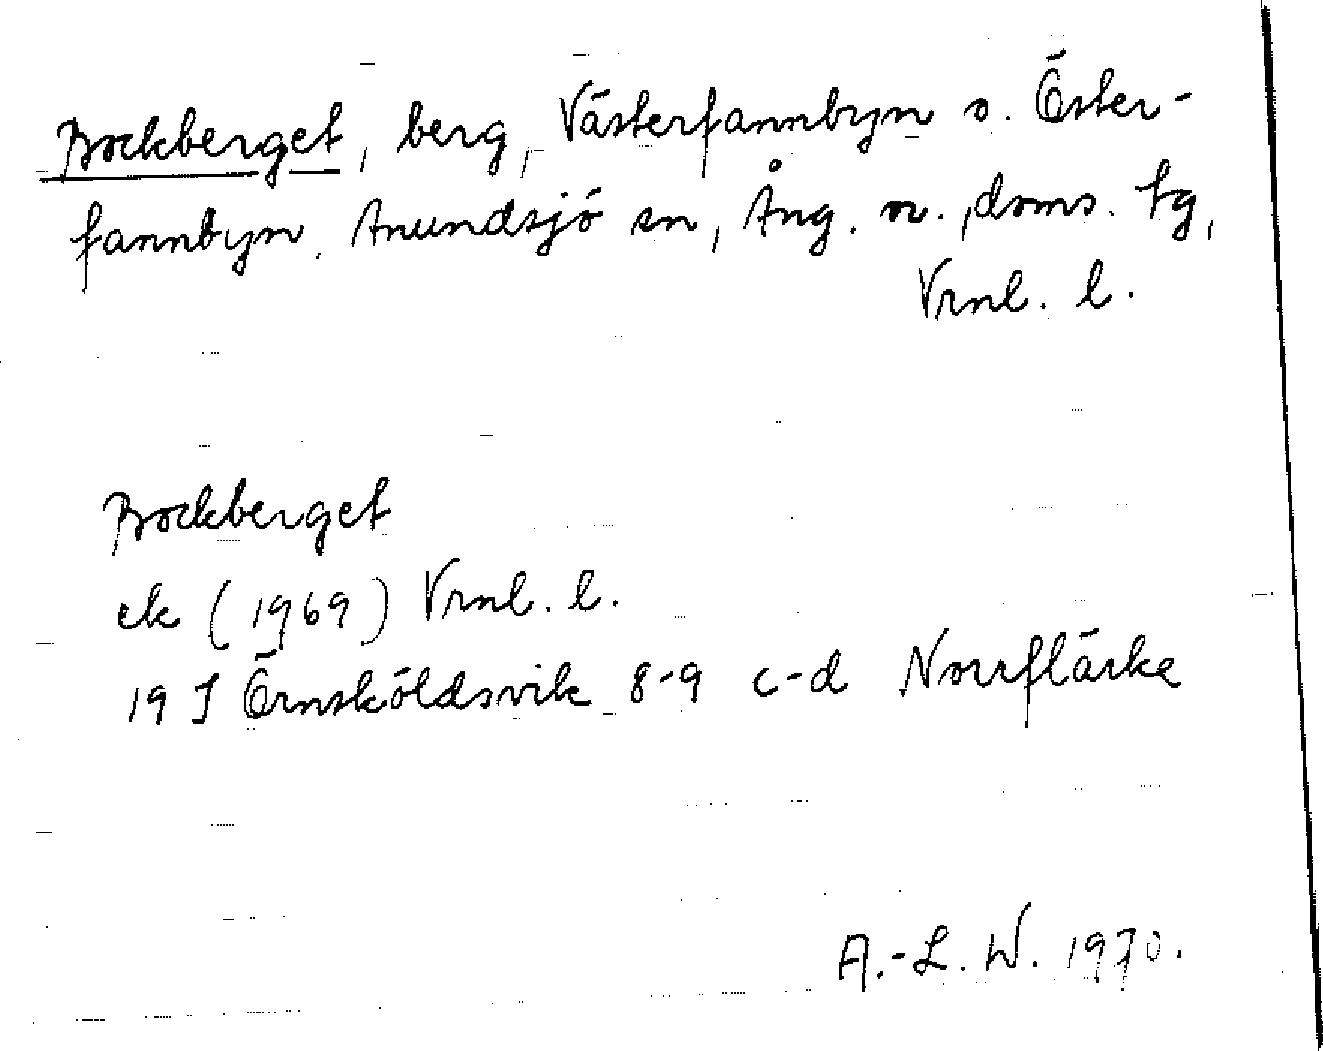 Bockberget, berg, Västerfannbyn o. Öster-
fannbyn. Anundsjö sn, Ång. n., doms. tg,
Vrnl. l.
Bockberget
ek (1969) Vrnl. l.
19 J Örnsköldsvik 8-9 c-d Norrflärke
A.-L. W. 1970.